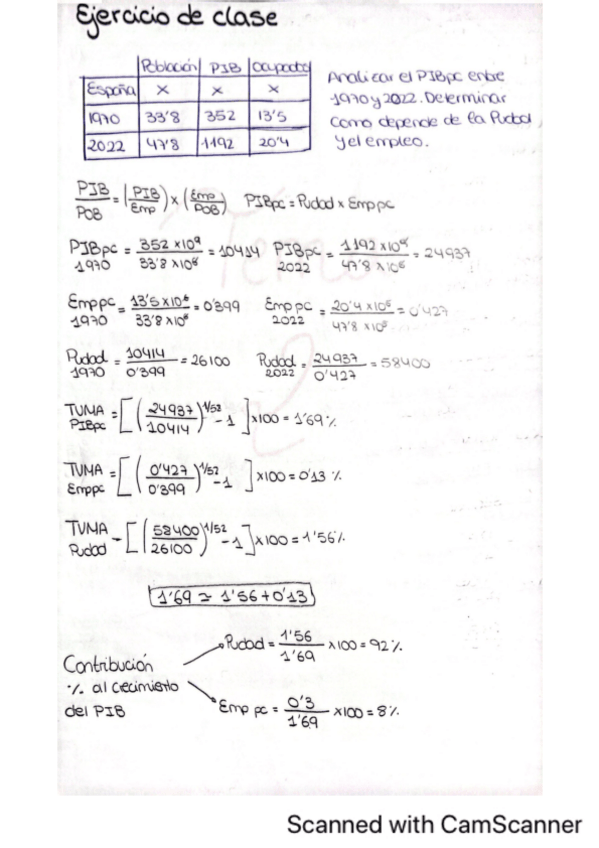 Ejercicio de clase
Población PIB Ocupados
España x x x
1970 33'8 352 13'5
2022 47'8 1192 20'4
Analizar el PIBpc entre
1970 y 2022. Determinar
como depende de la Pudad
y el empleo.
PIB/POB = (PIB/Emp) x (Emp/POB) PIBpc = Pudad x Emppc
PIBpc 1970 = 352 x10⁹/33'8 x10⁶ = 10414 PIBpc 2022 = 1192 x10⁹/47'8 x10⁶ = 24937
Emppc 1970 = 13'5 x10⁶/33'8 x10⁶ = 0'399 Emp pc 2022 = 20'4 x10⁶/47'8 x10⁶ = 0'427
Pudad 1970 = 10414/0'399 = 26100 Pudad 2022 = 24937/0'427 = 58400
TUMA PIBpc = [(24937/10414)^1/52 - 1] x100 = 1'69 %
TUMA Emppc = [(0'427/0'399)^1/52 - 1] x100 = 0'13 %
TUMA Pudad = [(58400/26100)^1/52 - 1] x100 = 1'56 %
1'69 ≃ 1'56 + 0'13
Pudad = 1'56/1'69 x100 = 92 %
Contribución
% al crecimiento
del PIB
Emp pc = 0'3/1'69 x100 = 8 %
Scanned with CamScanner